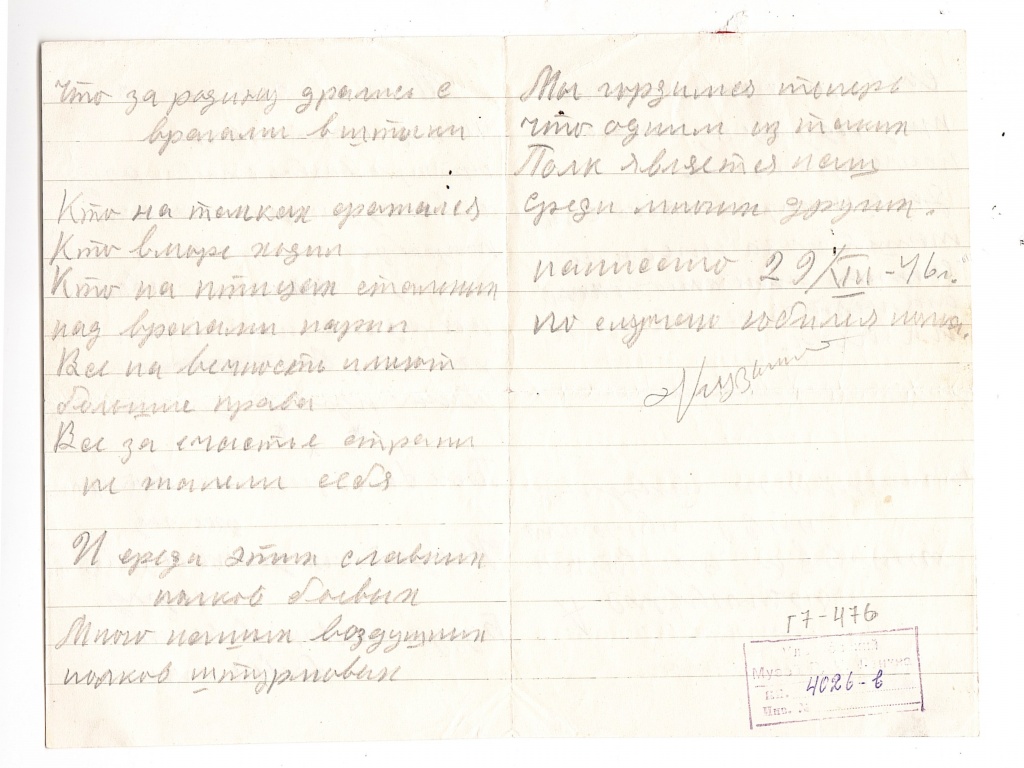 Что за родину дрались с
врагами в штыки
Кто на танках сражался
Кто в море ходил
Кто на птицах стальных
над врагами парил
Все на вечность имеют
большие права
Все за счастье страны
не жалели себя
И среди этих славных
полков боевых
Много наших воздушных
полков штурмовых
Мы гордимся теперь
Что одним из таких
Полк является наш
среди многих других.
написано 29/XIII-46г.
по случаю юбилея полка.
Г7-476
Муз
КП. 4026-в
Инв. №